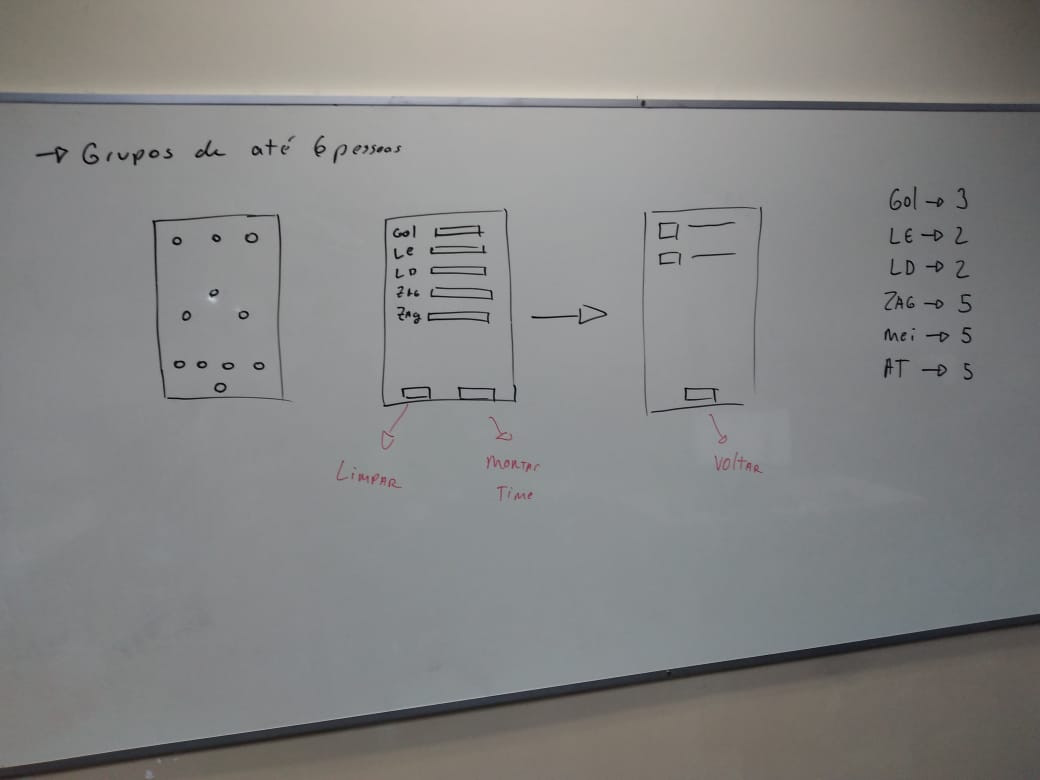 → Grupos de até 6 pessoas
Gol
LE
LD
ZAG
ZAg
LimPAR
MONTAR
Time
VOLTAR
Gol → 3
LE → 2
LD → 2
ZAG → 5
Mei → 5
AT → 5